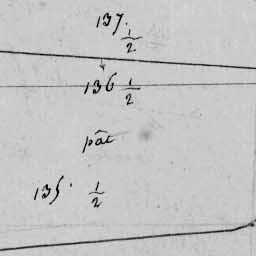 137. 1/2
136 1/2
pâc
135. 1/2